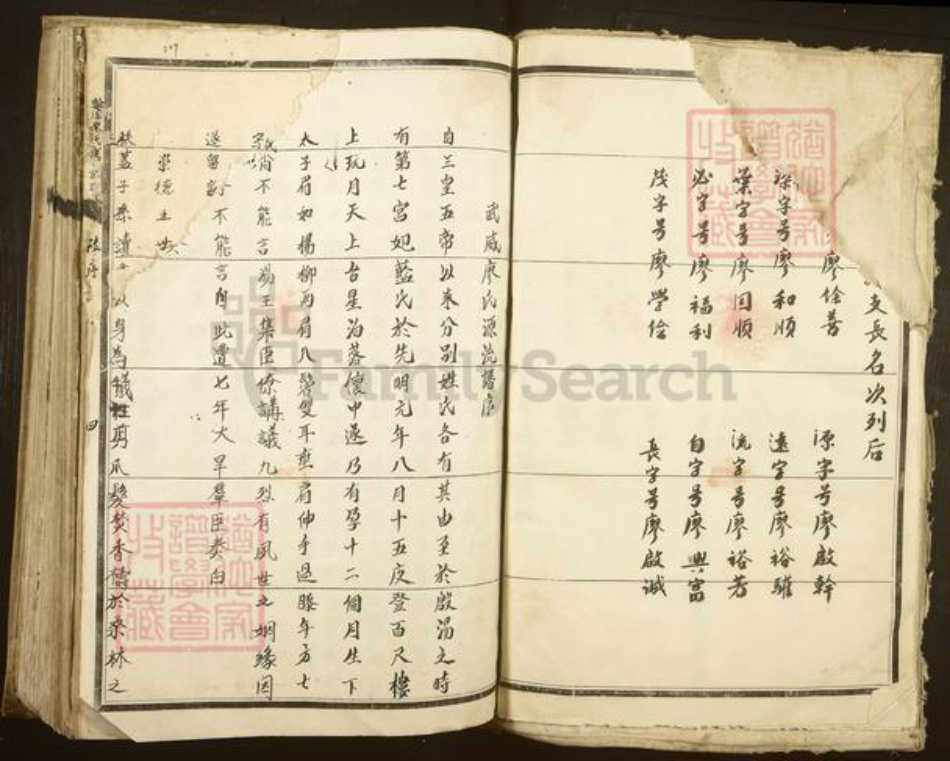 支長名次列后
廖繪善 源字号廖啟幹
深字号廖和順 遠字号廖裕驊
葉字号廖回順 流字号廖裕芳
必字号廖福利 自字号廖興富
茂字号廖學繪 長字号廖啟誠
武威廖氏源流譜序
自三皇五帝以來分別姓氏各有其由至於殷湯之時
有第七宮妃藍氏於先明元年八月十五夜登百尺樓
上玩月天上台星泊落懷中遂乃有孕十二個月生下
太子眉如楊柳両眉八鬢雙耳垂肩伸手過膝年方七
不能言湯王集臣僚講議九烈有夙世之姻緣因
遂留 不能言自此遭七年大旱羣臣奏白
蓋子桑 以身為犧牲剪爪髮焚香禱於桑林之
序
四
FamilySearch
猶他家譜學會收藏
猶他家譜學會收藏